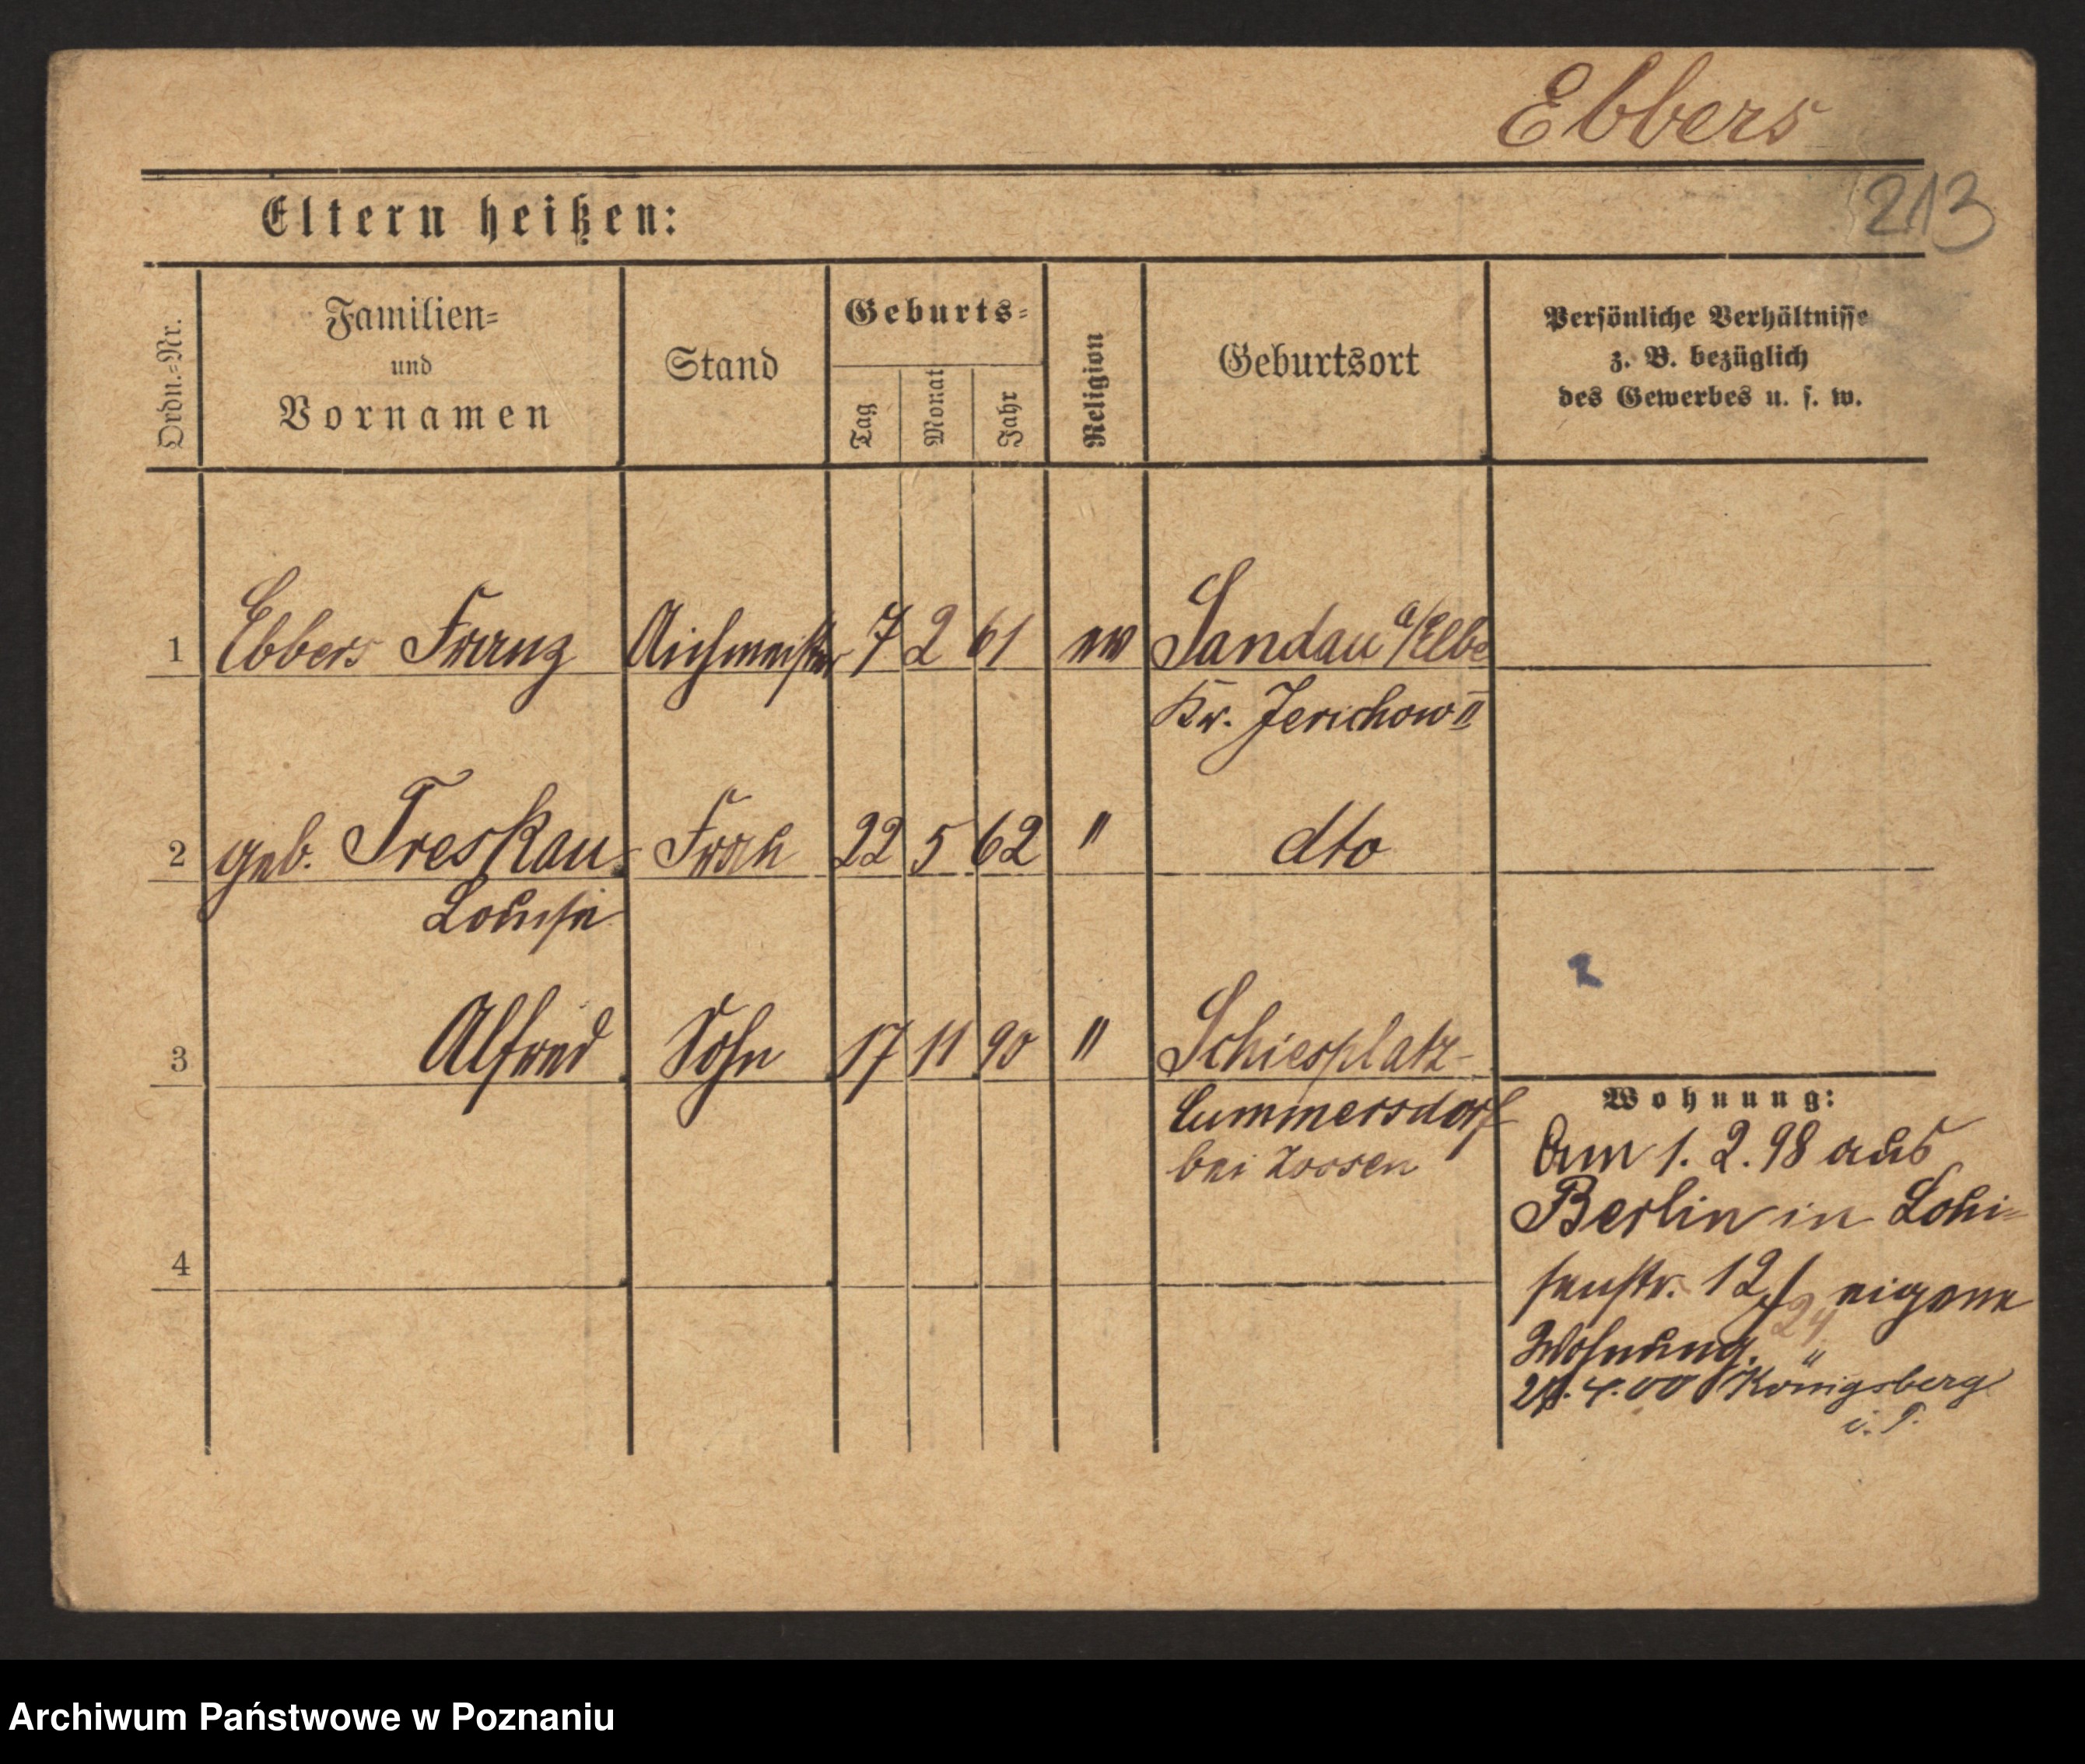 Ebbers
213
Eltern heißen:
Ordn.=Nr.
Familien=
und
Vornamen
Stand
Geburts=
Tag
Monat
Jahr
Religion
Geburtsort
Persönliche Verhältnisse
z. B. bezüglich
des Gewerbes u. s. w.
1 Ebbers Franz Aichmeister 7 2 61 ev Sandau a/Elbe
Kr. Jerichow II
2 geb. Treskau Frau 22 5 62 " dto
Louise
3 Alfred Sohn 17 11 90 " Schiesplatz-
Cummersdorf
bei Zossen
Wohnung:
Am 1. 2. 98 aus
Berlin in Loui=
senstr. 12 eigene
24
Wohnung. "
4
4.00 Königsberg
i. P.
Archiwum Państwowe w Poznaniu